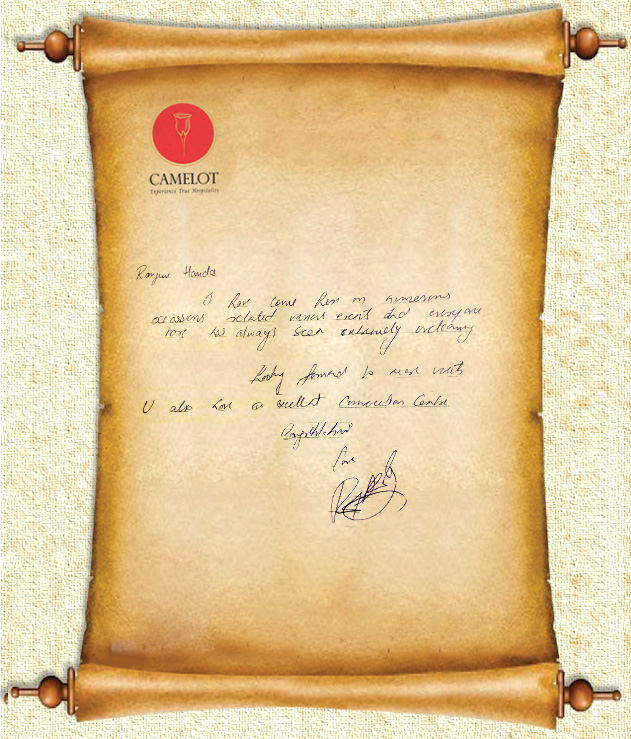 CAMELOT
Experience True Hospitality
I have come here on numerous
occasions related various event and everyone
has always been extremely welcoming
Looking forward to next visits
U also have a excellent Convention Centre
Love